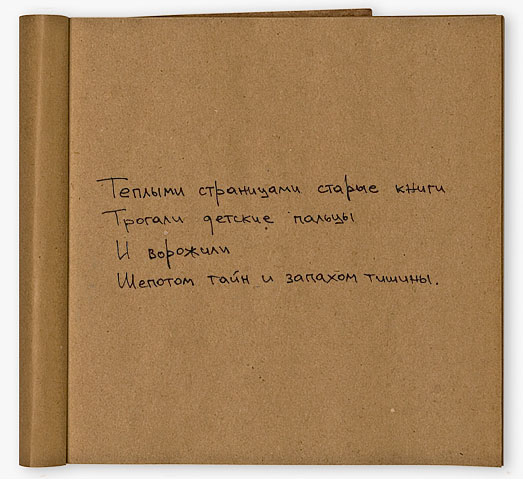 Теплыми страницами старые книги
Трогали детские пальцы
И ворожили
Шепотом тайн и запахом тишины.